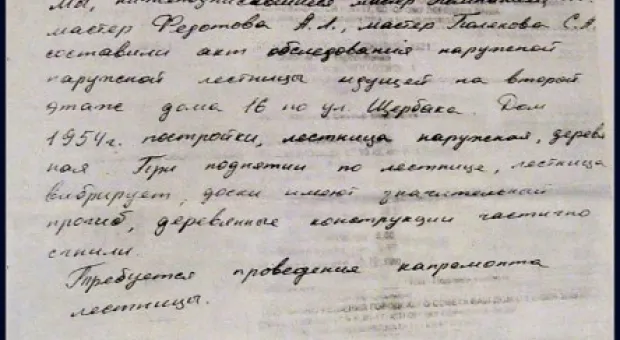 Мы, нижеподписавшиеся мастер
мастер Федотова А.А., мастер Полекова С.А.
составили акт обследования наружной
наружной лестницы идущей на второй
этаж дома 16 по ул. Щербака. Дом
1954г. постройки, лестница наружная, дерев
ная При поднятии по лестнице, лестница
вибрирует, доски имеют значительный
прогиб, деревянные конструкции частично
сгнили.
Требуется проведения капремонта
лестницы.